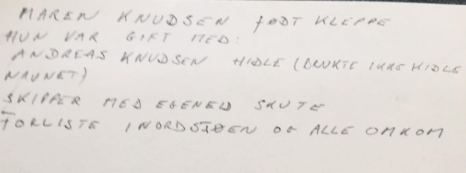 MAREN KNUDSEN FØDT KLEPPE
HUN VAR GIFT MED:
ANDREAS KNUDSEN HIDLE (BRUKTE IKKE HIDLE
NAVNET)
SKIPPER MED EGENEID SKUTE
FORLISTE I NORDSJØEN OG ALLE OMKOM